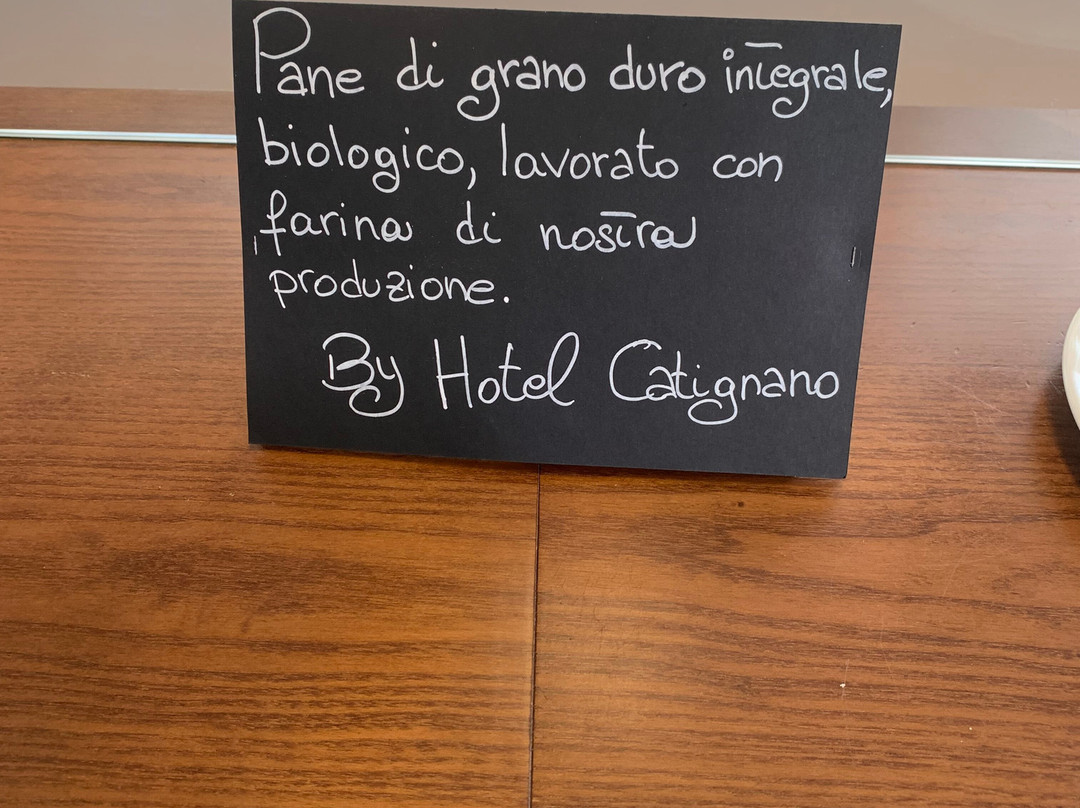 Pane di grano duro integrale,
biologico, lavorato con
farina di nostra
produzione.
By Hotel Catignano